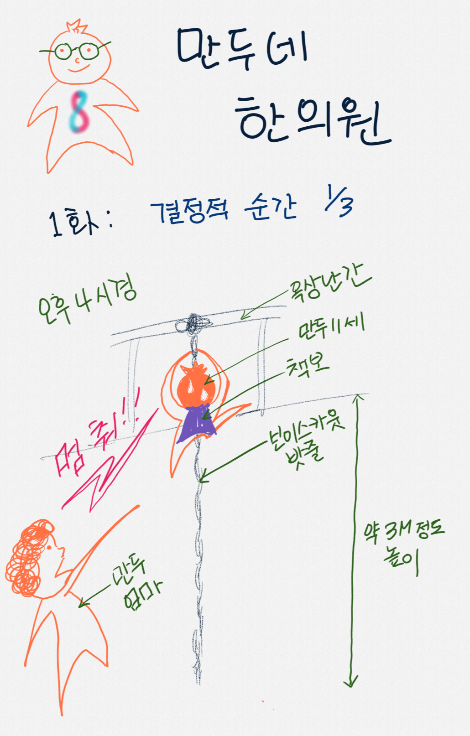 만두네
한의원
8
1화: 결정적 순간 1/3
오후 4시경
옥상난간
만두 11세
책보
멈춰!!
보이스카웃
밧줄
약 3M 정도
높이
만두
엄마